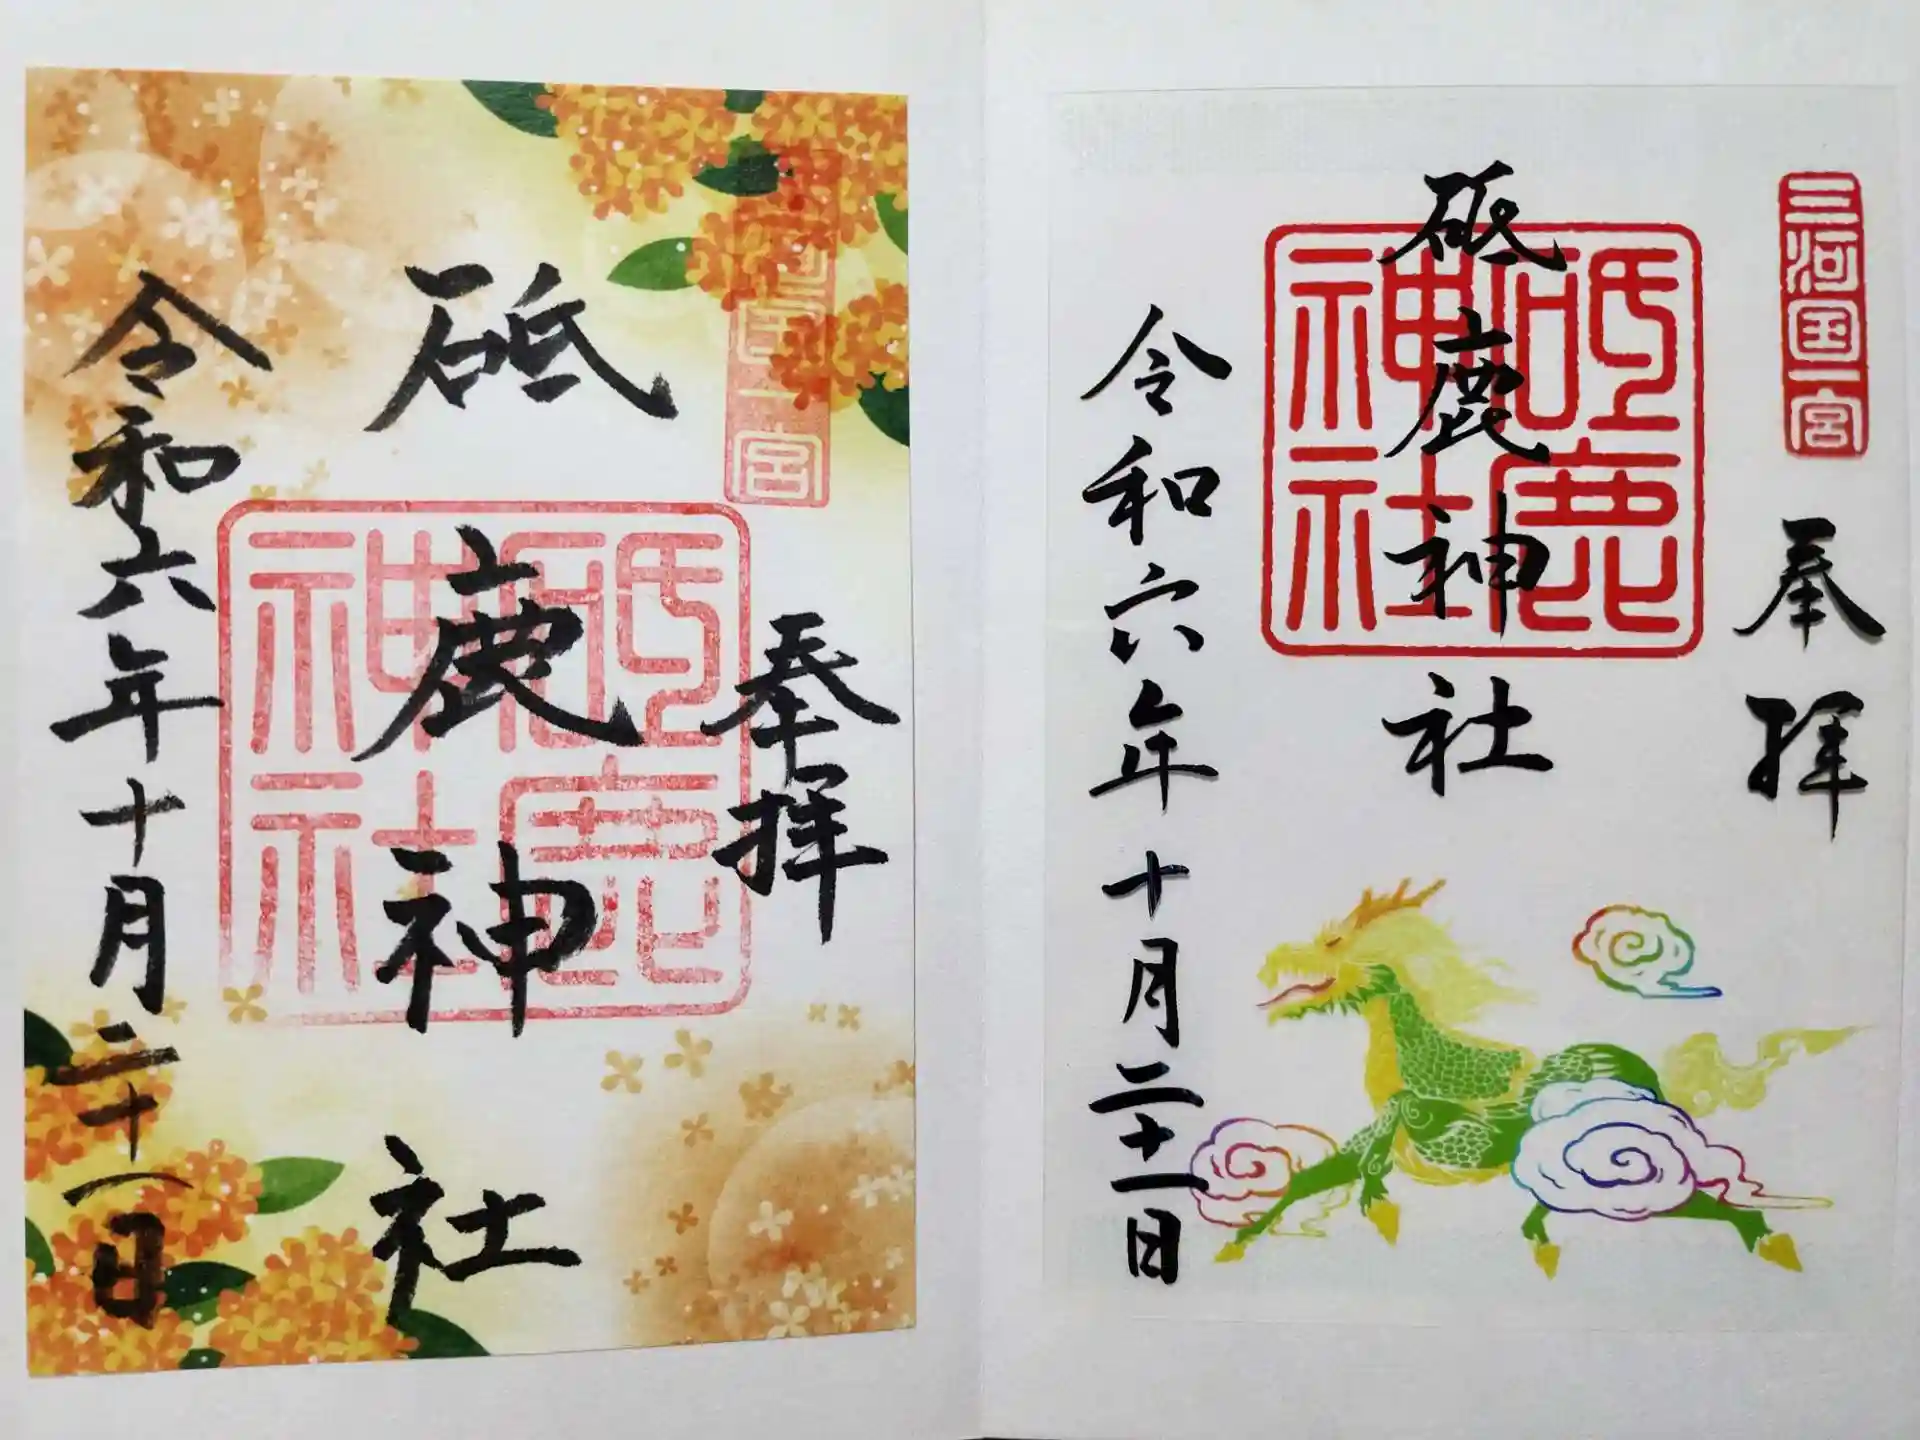 三河国一宮
奉拝
砥鹿神社
砥鹿
神社
令和六年十月二十一日
三河国一宮
奉拝
砥鹿神社
砥鹿
神社
令和六年十月二十一日